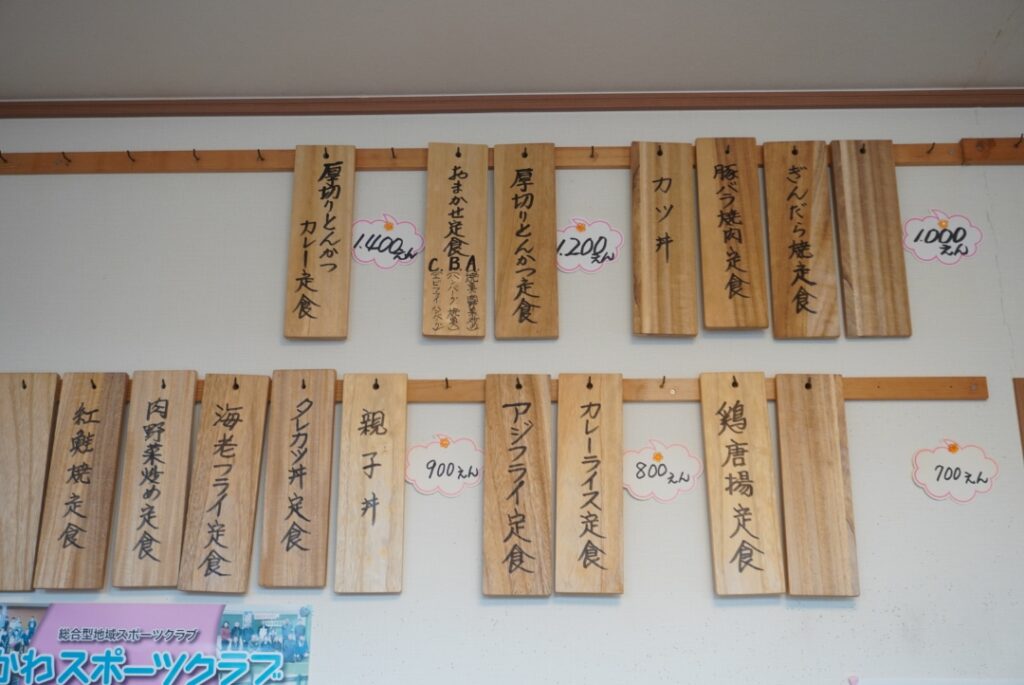 厚切りとんかつ
カレー定食
1.400えん
おまかせ定食
A.
B.
C.
厚切りとんかつ定食
1.200えん
カツ丼
豚バラ焼肉定食
ぎんだら焼定食
1.000えん
紅鮭焼定食
肉野菜炒め定食
海老フライ定食
タレカツ丼定食
親子丼
900えん
アジフライ定食
カレーライス定食
800えん
鶏唐揚定食
700えん
総合型地域スポーツクラブ
かわスポーツクラブ